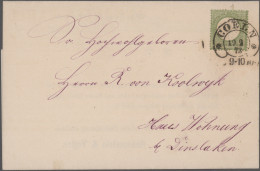 COELN
9-10
Sr Hochwohlgeboren
Herrn R von Koolwyk
Haus Wohnung
b/ Dinslaken